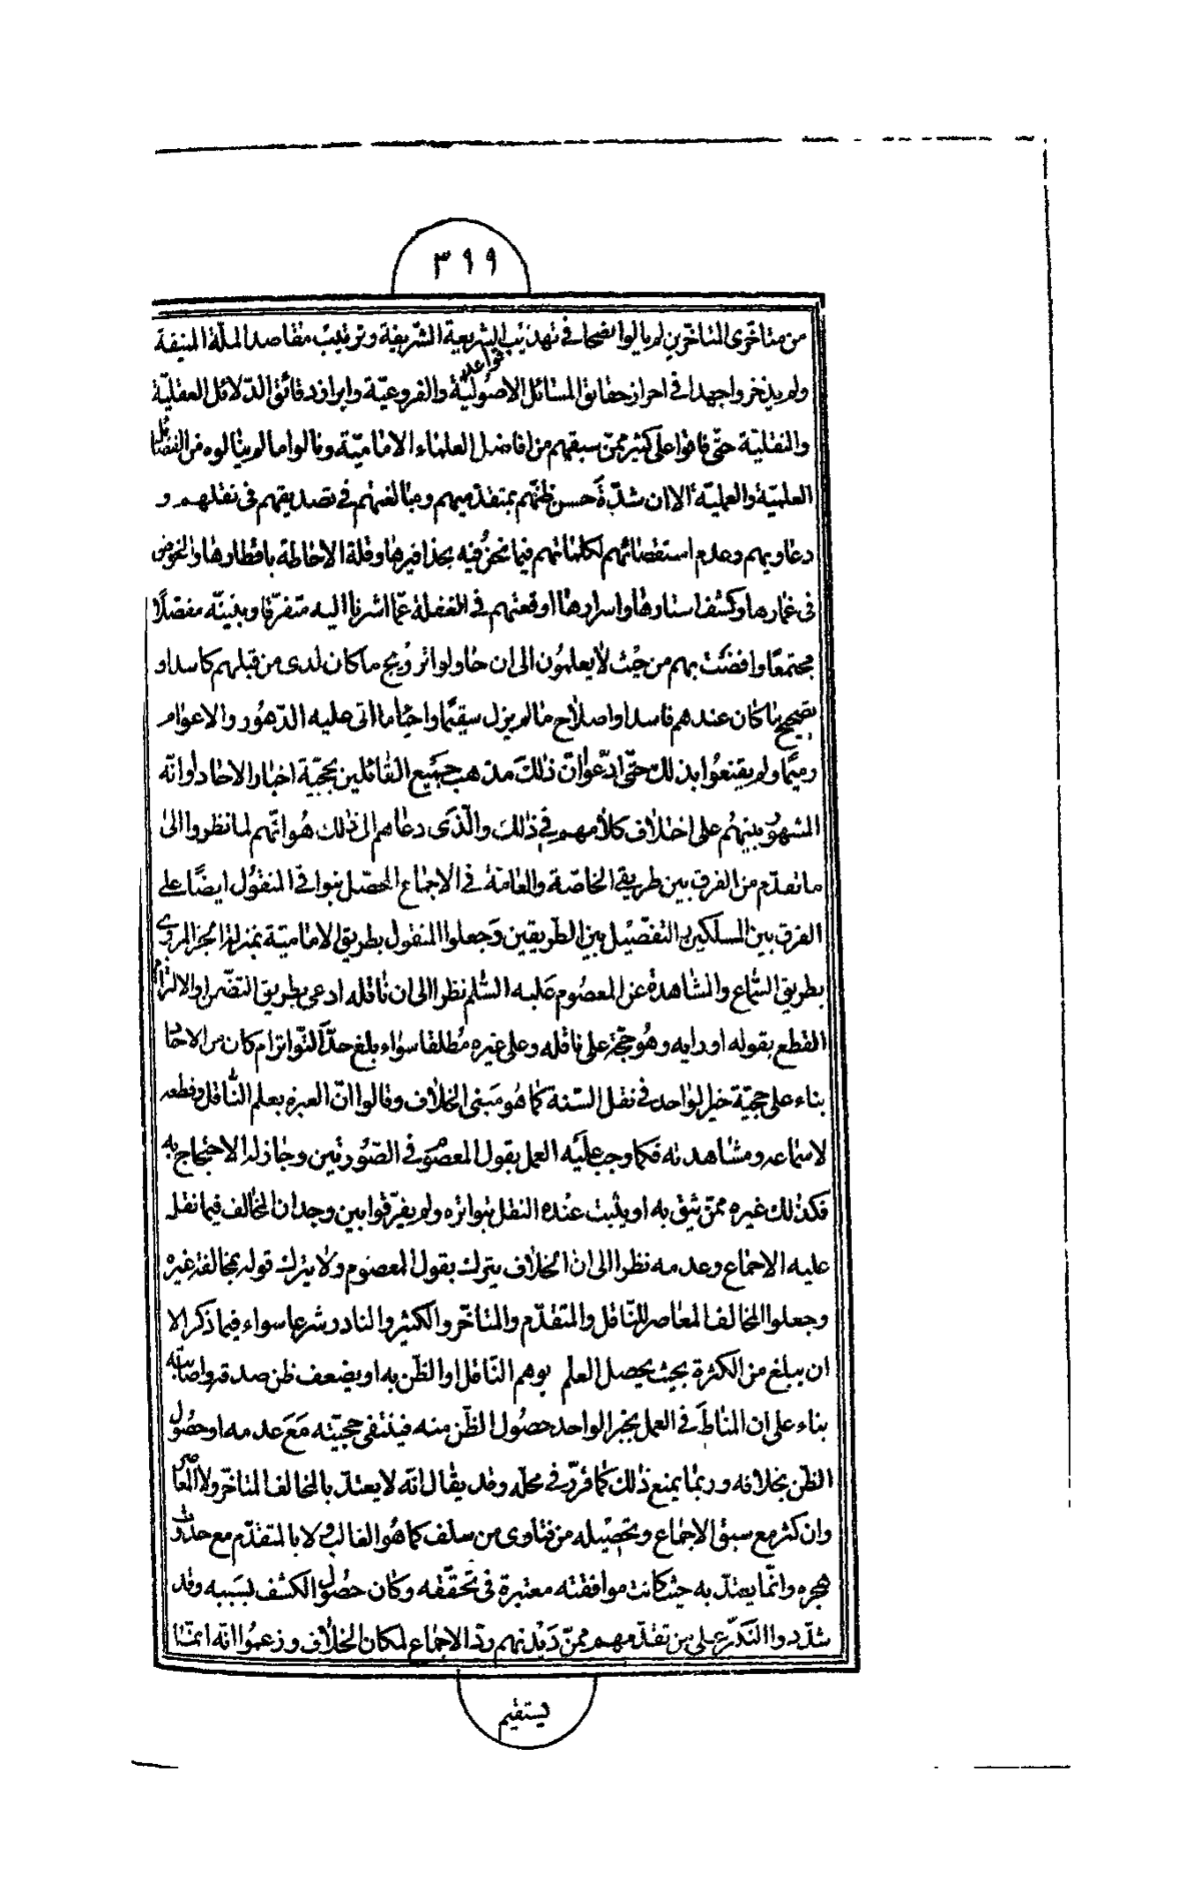 ٣٩٩
من متأخرى المتأخرين لم يالوا نصحا فى تهذيب قواعد الشريعة الشريفة وترتيب مقاصد الملة المنيفة
ولم يدخروا جهدا فى احراز حقايق المسائل الاصوليّة والفروعيّة وابراز دقائق الدّلائل العقليّة
والنقليّة حتّى فاقوا على كثير ممّن سبقهم من افاضل العلماء الاماميّة ونالوا ما لم ينالوه من الفضائل
العلميّة والعمليّة الا ان شدّة حسن ظنّهم بمتقدّميهم ومبالغتهم فى تصديقهم فى نقلهم و
دعاويهم وعدم استقصائهم لكلماتهم فيما نحن فيه بحذافيرها وقلة الاحاطة باقطارها والخوض
فى غمارها وكشف استارها واسرارها اوقعتهم فى الغفلة عمّا اشرنا اليه متفرّقا ونبينّه مفصّلًا
مجتمعًا وافضت بهم من حيث لا يعلمون الى ان حاولوا ترويج ما كان لدى من قبلهم كاسدا و
تصحيح ما كان عندهم فاسدا واصلاح ما لم يزل سقيمًا واحياء ما اتى عليه الدّهور والاعوام
رميمًا ولم يقنعوا بذلك حتّى ادّعوا انّ ذلك مذهب جميع القائلين بحجيّة اخبار الاحاد او انّه
المشهور بينهم على اختلاف كلامهم فى ذلك والّذى دعاهم الى ذلك هو انّهم لما نظروا الى
ما تقدّم من الفرق بين طريقى الخاصّة والعامة فى الاجماع المحصّل بنوا فى المنقول ايضًا على
الفرق بين المسلكين والتفصيل بين الطّريقين وجعلوا المنقول بطريق الاماميّة بمنزلة الخبر المروى
بطريق السّماع والمشاهدة عن المعصوم عليه السّلم نظرا الى ان ناقله ادعى بطريق التضمّن او الالتزام
القطع بقوله او رايه وهو حجّة على ناقله وعلى غيره مطلقا سواء بلغ حدّ التّواتر ام كان من الاحاد
بناء على حجيّة خبر الواحد فى نقل السّنة كما هو مبنى الخلاف وقالوا انّ العبرة بعلم النّاقل وقطعه
لا سماعه ومشاهدته فكما وجب عليه العمل بقول المعصوم فى الصّورتين وجاز له الاحتجاج به
فكذلك غيره ممّن يثق به او يثبت عنده النقل بتواتره ولم يفرّقوا بين وجدان المخالف فيما نقل
عليه الاجماع وعدمه نظرا الى ان الخلاف يترك بقول المعصوم ولا يترك قوله بمخالفة غيره
وجعلوا المخالف المعاصر للنّاقل والمتقدّم والمتاخّر والكثير والنادر شرعا سواء فيما ذكر الا
ان يبلغ من الكثرة بحيث يحصل العلم بوهم النّاقل او الظّن به او يضعف ظن صدقه واصابته
بناء على ان المناط فى العمل بخبر الواحد حصول الظّن منه فينتفى حجيّته مع عدمه او حصول
الظّن بخلافه وربما يمنع ذلك كما قرّر فى محلّه وقد يقال انّه لا يعتدّ بالمخالف المتاخّر ولا المعاصر
وان كثر مع سبق الاجماع وتحصيله من فتاوى من سلف كما هو الغالب ولا بالمتقدّم مع حدوث
هجره وانّما يعتدّ به حيث كانت موافقته معتبرة فى تحقّقه وكان حصول الكشف بسببه وقد
شدّدوا النّكير على من تقدّمهم ممّن ديدنهم ردّ الاجماع لمكان الخلاف وزعموا انّه انّما
يستقيم